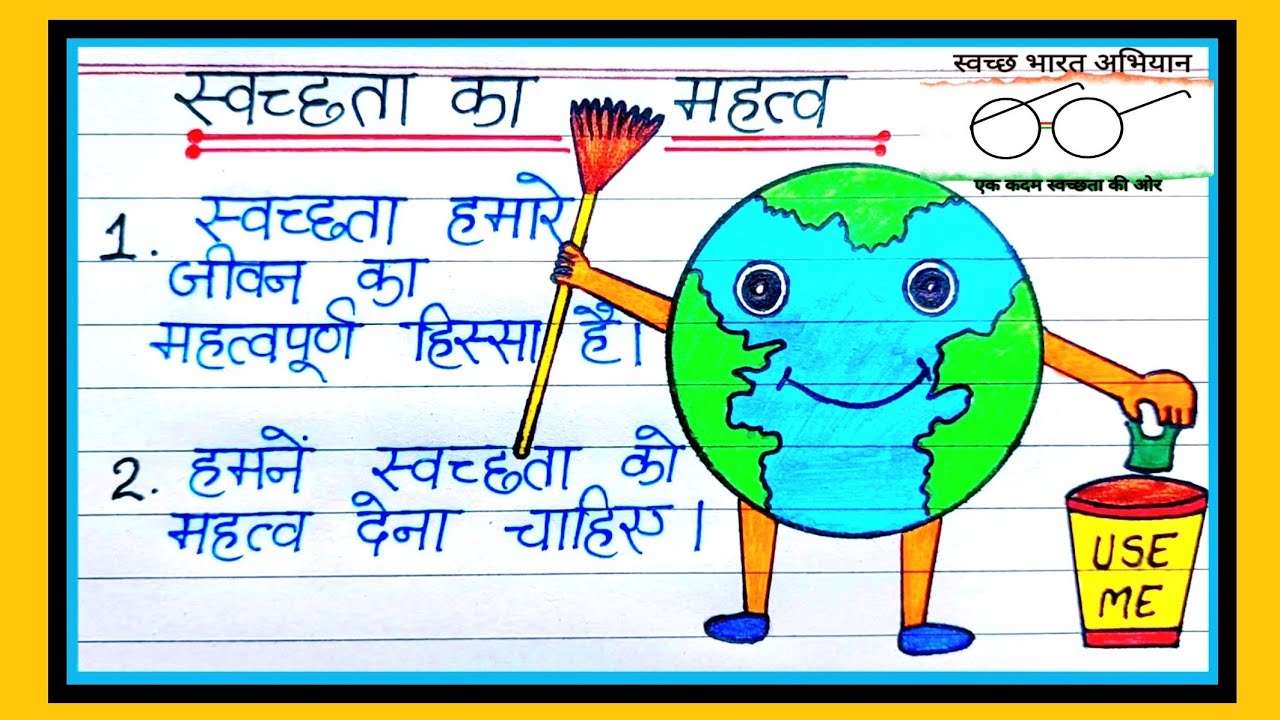 स्वच्छता का महत्व
स्वच्छ भारत अभियान
एक कदम स्वच्छता की ओर
1. स्वच्छता हमारे
जीवन का
महत्वपूर्ण हिस्सा है।
2. हमनें स्वच्छता को
महत्व देना चाहिए।
USE
ME